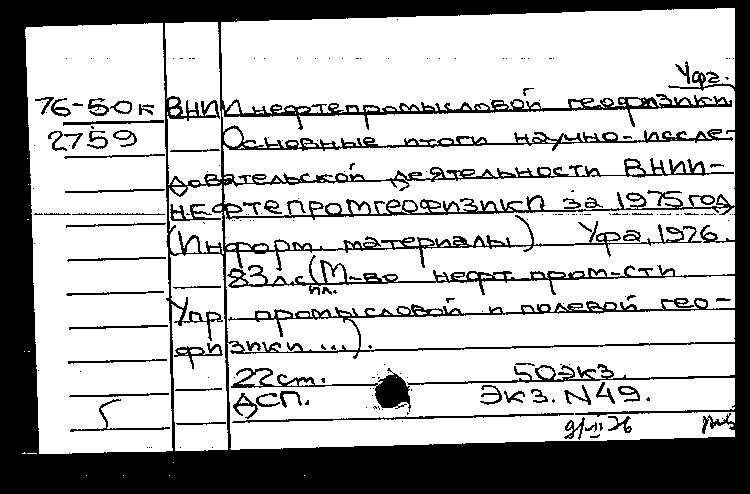 Уфа.
76-50к ВНИИнефтепромысловой геофизики
2759 Основные итоги научно-иссле-
довательской деятельности ВНИИ-
НЕФТЕПРОМГЕОФИЗИКИ за 1975 год
(Информ. материалы) Уфа, 1976.
83л.с ил. (М-во нефт. пром-сти
Упр. промысловой и полевой гео-
физики...).
22см. 50экз.
ДСП. Экз. N49.